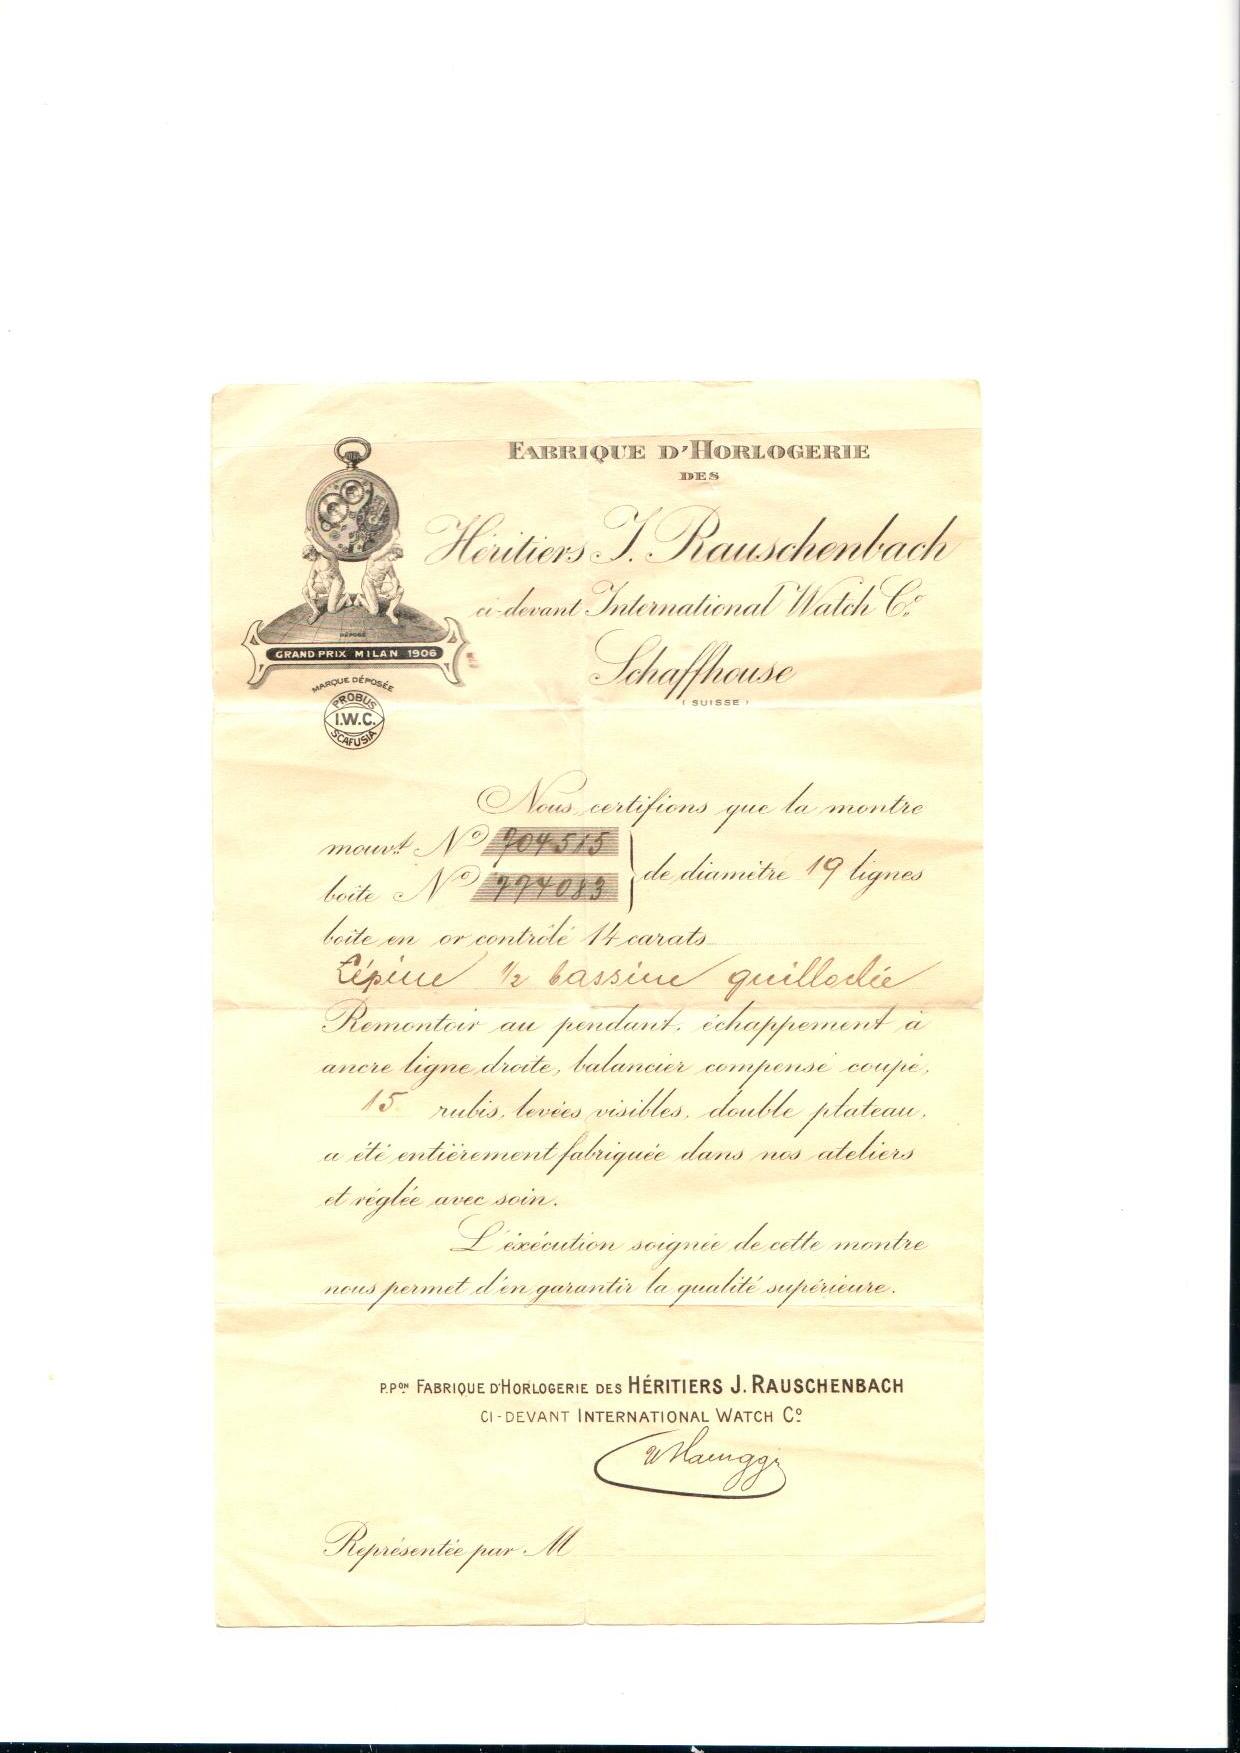 FABRIQUE D'HORLOGERIE
DES
Héritiers J. Rauschenbach
ci-devant International Watch Co.
Schaffhouse
(SUISSE)
DÉPOSÉ
GRAND PRIX MILAN 1906
MARQUE DÉPOSÉE
PROBUS
I.W.C.
SCAFUSIA
Nous certifions que la montre
mouvt. No 704515
boîte No 774083
de diamètre 19 lignes
boîte en or contrôlé 14 carats
Lépine 1/2 bassine guillochée
Remontoir au pendant, échappement à
ancre ligne droite, balancier compensé coupé,
15 rubis, levées visibles, double plateau,
a été entièrement fabriquée dans nos ateliers
et réglée avec soin.
L'éxécution soignée de cette montre
nous permet d'en garantir la qualité supérieure.
P.PON FABRIQUE D'HORLOGERIE DES HÉRITIERS J. RAUSCHENBACH
CI-DEVANT INTERNATIONAL WATCH Co
Représentée par M